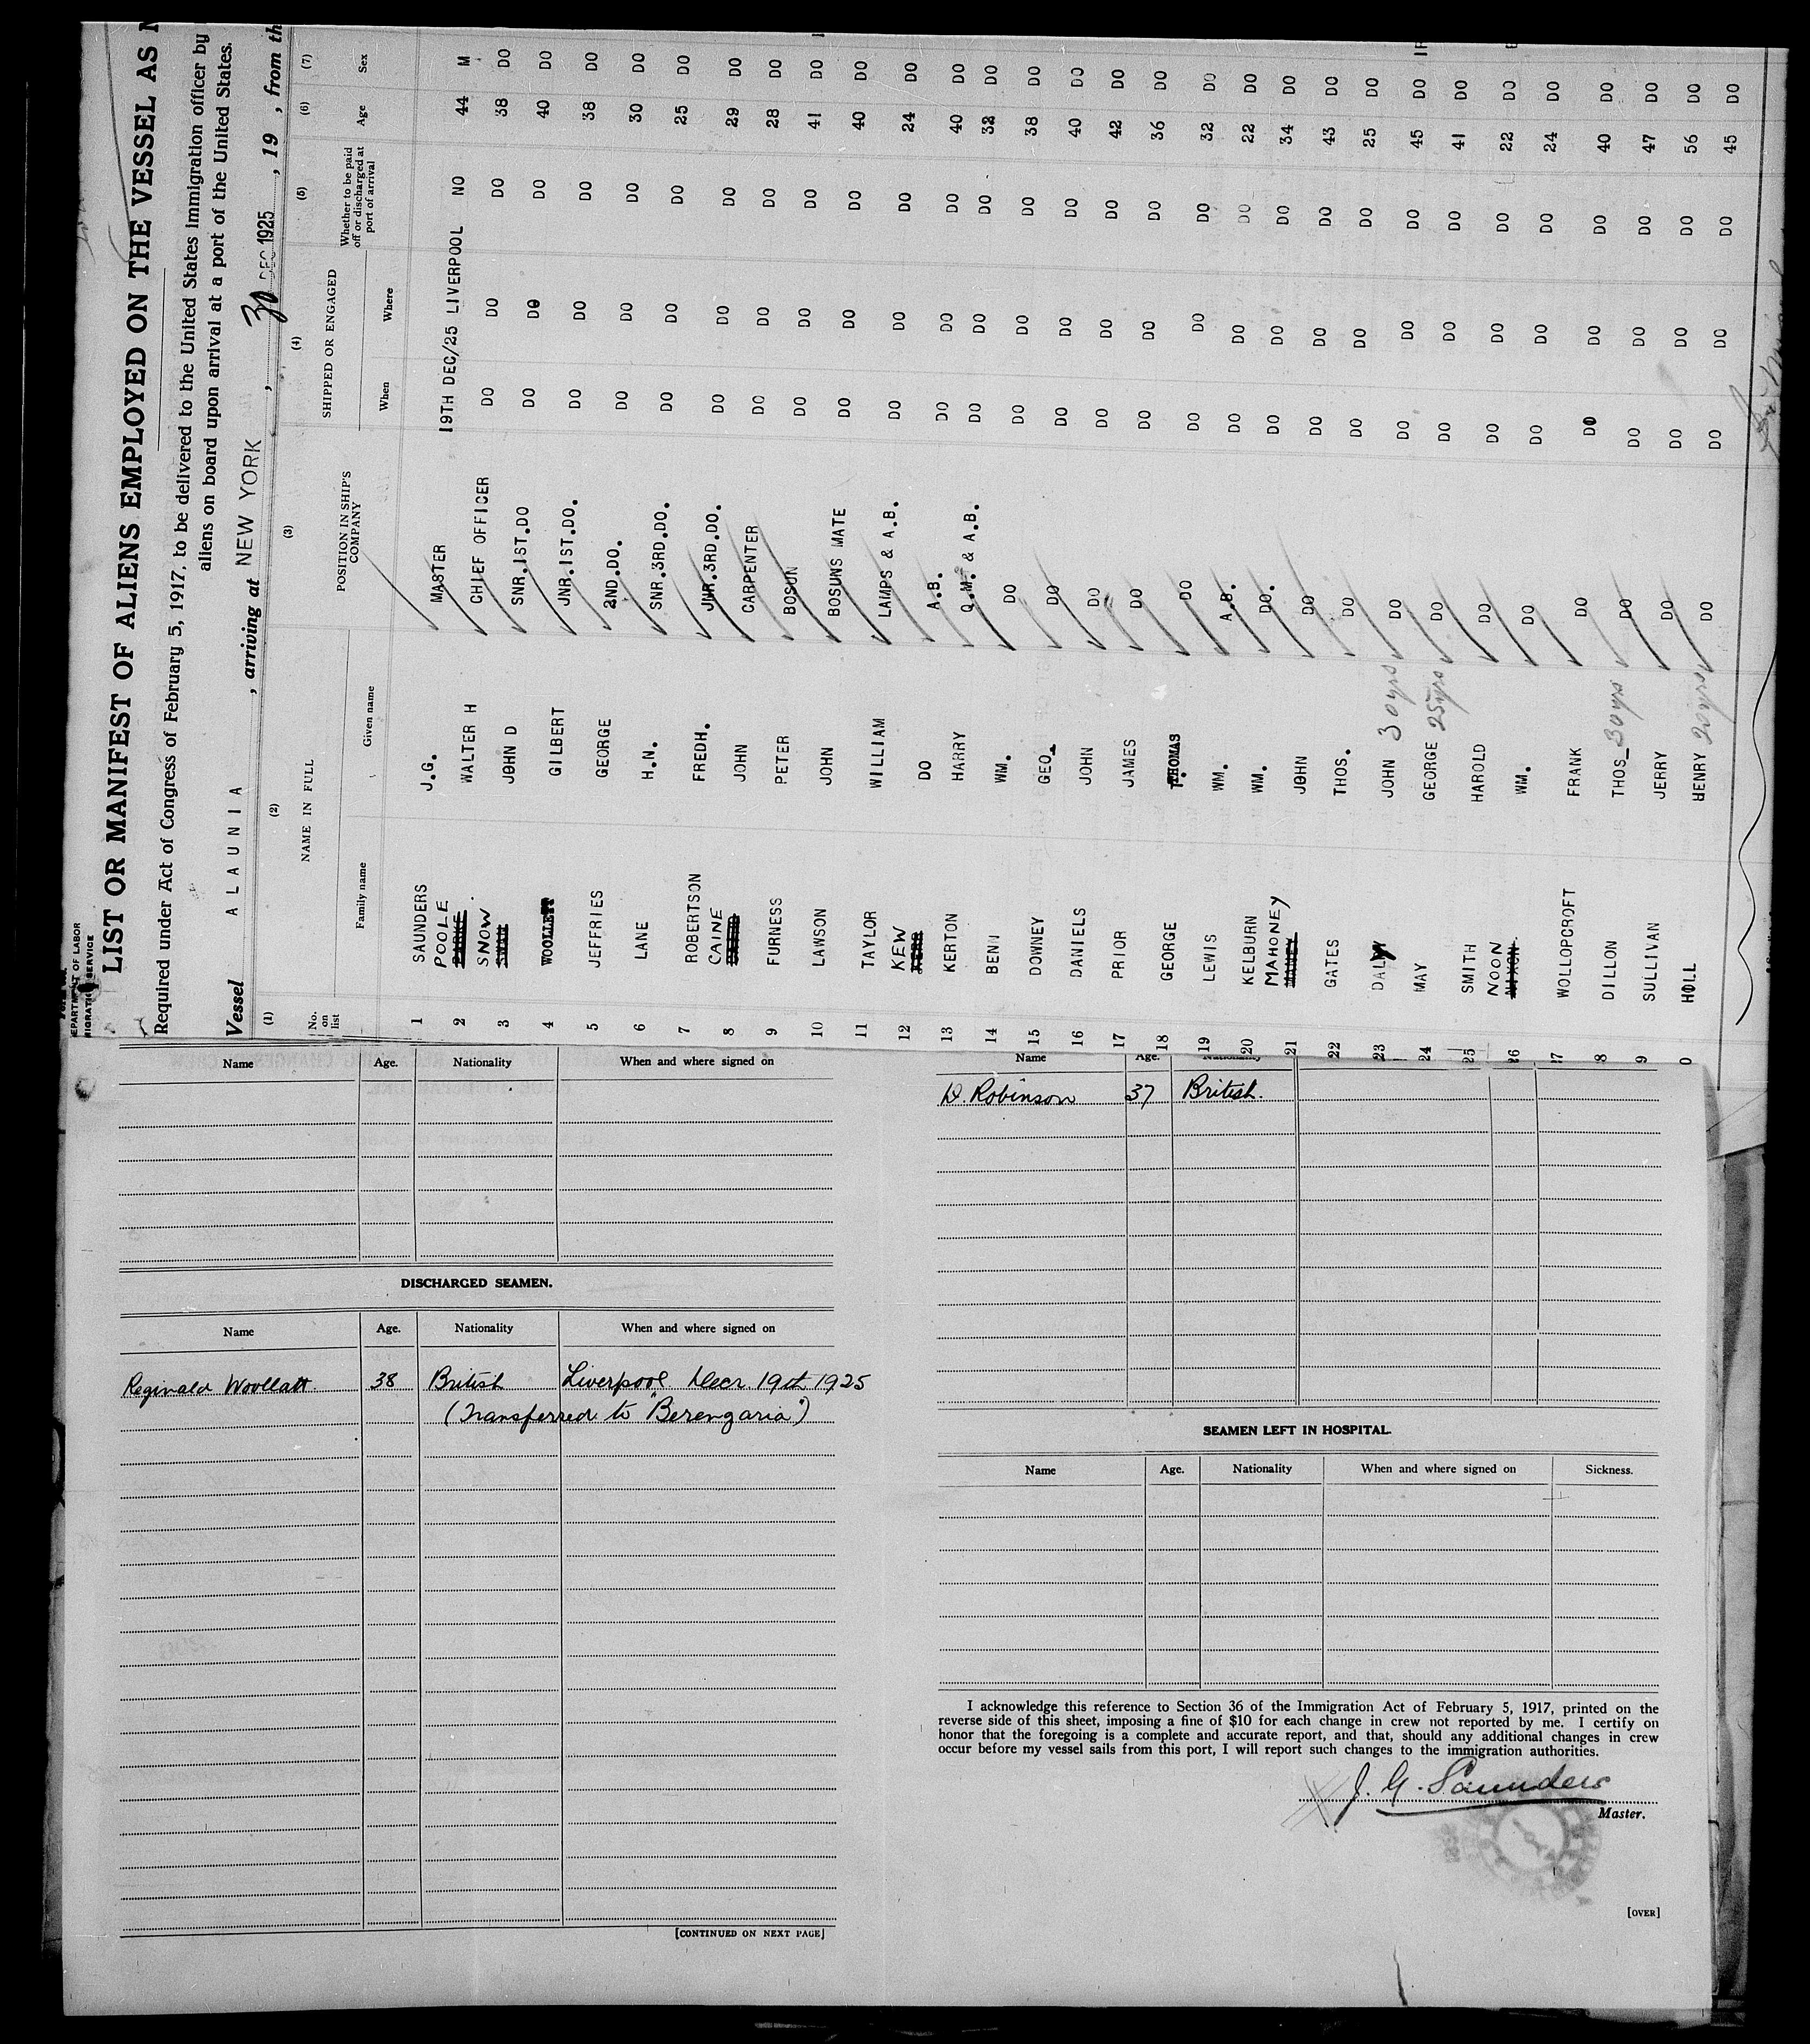 DEPARTMENT OF LABOR
LIST OR MANIFEST OF ALIENS EMPLOYED ON THE VESSEL AS
Required under Act of Congress of February 5, 1917, to be delivered to the United States immigration officer by
aliens on board upon arrival at a port of the United States.
Vessel ALAUNIA , arriving at NEW YORK , 30 DEC 1925 , 19 , from th
(1) (2) (3) (4) (5) (6) (7)
No. on list NAME IN FULL POSITION IN SHIP'S COMPANY SHIPPED OR ENGAGED Whether to be paid off or discharged at port of arrival Age Sex
Family name Given name When Where
1 SAUNDERS J.G. MASTER 19TH DEC/25 LIVERPOOL NO 44 M
2 POOLE WALTER H CHIEF OFFICER DO DO DO 38 DO
3 SNOW JOHN D SNR.1ST.DO DO DO DO 40 DO
4 WOOLLETT GILBERT JNR.1ST.DO. DO DO DO 38 DO
5 JEFFRIES GEORGE 2ND.DO. DO DO DO 30 DO
6 LANE H.N. SNR.3RD.DO. DO DO DO 25 DO
7 ROBERTSON FREDH. JNR.3RD.DO. DO DO DO 29 DO
8 CAINE JOHN CARPENTER DO DO DO 28 DO
9 FURNESS PETER BOSUN DO DO DO 41 DO
10 LAWSON JOHN BOSUNS MATE DO DO DO 40 DO
11 TAYLOR WILLIAM LAMPS & A.B. DO DO DO 24 DO
12 KEW DO A.B. DO DO DO 40 DO
13 KERTON HARRY Q.M. & A.B. DO DO DO 32 DO
14 BENN WM. DO DO DO DO 38 DO
15 DOWNEY GEO. DO DO DO DO 40 DO
16 DANIELS JOHN DO DO DO DO 42 DO
17 PRIOR JAMES DO DO DO DO 36 DO
18 GEORGE THOMAS DO DO DO DO 32 DO
19 LEWIS WM. A.B. DO DO DO 22 DO
20 KELBURN WM. DO. DO DO DO 34 DO
21 MAHONEY JOHN DO DO DO DO 43 DO
22 GATES THOS. DO DO DO DO 25 DO
23 DALY JOHN 30 yrs DO DO DO DO 45 DO
24 MAY GEORGE 25yrs DO DO DO DO 41 DO
25 SMITH HAROLD DO DO DO DO 22 DO
26 NOON WM. DO DO DO DO 24 DO
27 WOLLOPCROFT FRANK DO DO DO DO 40 DO
8 DILLON THOS 30 yrs DO DO DO DO 47 DO
9 SULLIVAN JERRY DO DO DO DO 56 DO
0 HOLL HENRY 20 yrs DO DO DO DO 45 DO
Name Age. Nationality When and where signed on
DISCHARGED SEAMEN.
Name Age. Nationality When and where signed on
Reginald Woollatt. 38 British Liverpool Decr. 19th 1925
(Transferred to "Berengaria")
[CONTINUED ON NEXT PAGE]
Name Age. Nationality
D. Robinson 37 British.
SEAMEN LEFT IN HOSPITAL.
Name Age. Nationality When and where signed on Sickness.
I acknowledge this reference to Section 36 of the Immigration Act of February 5, 1917, printed on the
reverse side of this sheet, imposing a fine of $10 for each change in crew not reported by me. I certify on
honor that the foregoing is a complete and accurate report, and that, should any additional changes in crew
occur before my vessel sails from this port, I will report such changes to the immigration authorities.
J. G. Saunders
Master.
[OVER]